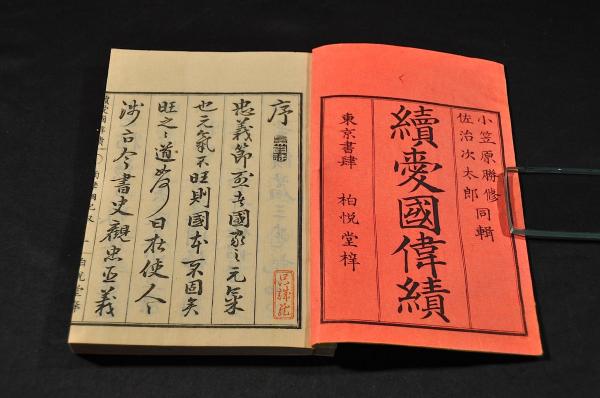 小笠原勝修
佐治次太郎
同輯
續愛國偉績
東京書肆 柏悦堂梓
序
忠義節烈者國家之元氣
也元氣不旺則國本不固矣
旺之之道奈何曰在使人〻
渉古今書史觀忠臣義